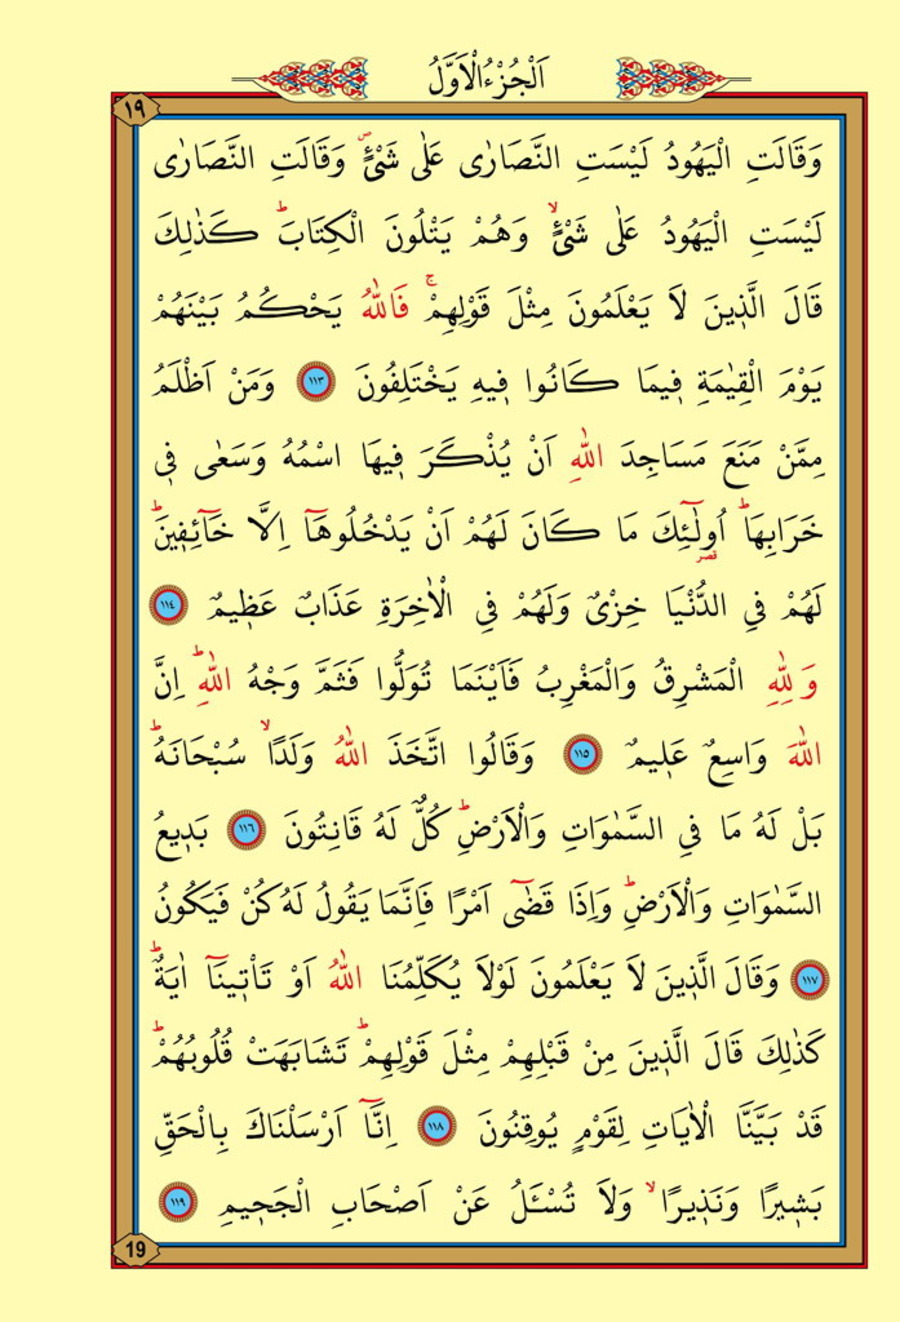 اَلْجُزْءُ الْاَوَّلُ
١٩
وَقَالَتِ الْيَهُودُ لَيْسَتِ النَّصَارٰى عَلٰى شَيْءٍۖ وَقَالَتِ النَّصَارٰى
لَيْسَتِ الْيَهُودُ عَلٰى شَيْءٍۙ وَهُمْ يَتْلُونَ الْكِتَابَۜ كَذٰلِكَ
قَالَ الَّذ۪ينَ لَا يَعْلَمُونَ مِثْلَ قَوْلِهِمْۚ فَاللّٰهُ يَحْكُمُ بَيْنَهُمْ
يَوْمَ الْقِيٰمَةِ ف۪يمَا كَانُوا ف۪يهِ يَخْتَلِفُونَ ١١٣ وَمَنْ اَظْلَمُ
مِمَّنْ مَنَعَ مَسَاجِدَ اللّٰهِ اَنْ يُذْكَرَ ف۪يهَا اسْمُهُ وَسَعٰى ف۪ي
خَرَابِهَاۜ اُو۬لٰٓئِكَ مَا كَانَ لَهُمْ اَنْ يَدْخُلُوهَٓا اِلَّا خَٓائِف۪ينَۜ
لَهُمْ فِي الدُّنْيَا خِزْيٌ وَلَهُمْ فِي الْاٰخِرَةِ عَذَابٌ عَظ۪يمٌ ١١٤
وَلِلّٰهِ الْمَشْرِقُ وَالْمَغْرِبُ فَاَيْنَمَا تُوَلُّوا فَثَمَّ وَجْهُ اللّٰهِۜ اِنَّ
اللّٰهَ وَاسِعٌ عَل۪يمٌ ١١٥ وَقَالُوا اتَّخَذَ اللّٰهُ وَلَدًاۙ سُبْحَانَهُۜ
بَلْ لَهُ مَا فِي السَّمٰوَاتِ وَالْاَرْضِۜ كُلٌّ لَهُ قَانِتُونَ ١١٦ بَد۪يعُ
السَّمٰوَاتِ وَالْاَرْضِۜ وَاِذَا قَضٰٓى اَمْرًا فَاِنَّمَا يَقُولُ لَهُ كُنْ فَيَكُونُ
١١٧ وَقَالَ الَّذ۪ينَ لَا يَعْلَمُونَ لَوْلَا يُكَلِّمُنَا اللّٰهُ اَوْ تَأْت۪ينَٓا اٰيَةٌۜ
كَذٰلِكَ قَالَ الَّذ۪ينَ مِنْ قَبْلِهِمْ مِثْلَ قَوْلِهِمْۜ تَشَابَهَتْ قُلُوبُهُمْۜ
قَدْ بَيَّنَّا الْاٰيَاتِ لِقَوْمٍ يُوقِنُونَ ١١٨ اِنَّٓا اَرْسَلْنَاكَ بِالْحَقِّ
بَش۪يرًا وَنَذ۪يرًاۙ وَلَا تُسْـَٔلُ عَنْ اَصْحَابِ الْجَح۪يمِ ١١٩
19